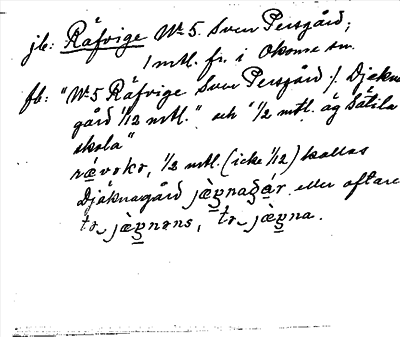 jb: Räfvige No 5 Sven Persgård;
1 mtl. fr. i Okome sn.
fb: "No 5 Räfvige Sven Persgård /. Djäkna
gård 1/12 mtl." och "1/2 mtl. äg Sätila
skola"
rǽvoko, 1/2 mtl. (icke 1/12) kallas
Djäknagård jægnagár eller oftare
to jægnans, to jægna.